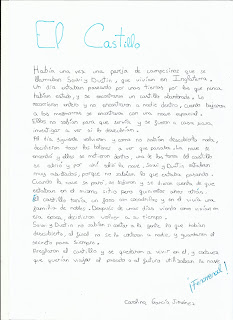 El Castillo
Había una vez una pareja de campesinos que se
llamaban Saori y Dustin, que vivían en Inglaterra.
Un día estaban paseando por unas tierras por las que nunca
habían estado, y se encontraron un castillo alumbrado. Lo
recorrieron entero y no encontraron a nadie dentro, cuando bajaron
a las mazmorras se encontraron con una nave espacial.
Ellos no sabían para que servía y se fueron a casa para
investigar a ver si lo descubrían.
Al día siguiente volvieron y como no sabían descubrirla nada,
decidieron tocar los botones a ver que pasaba. La nave se
encendió y ellos se metieron dentro, una de las torres del castillo
se abrió y por ahí salió la nave. Saori y Dustin estaban
muy asustados, porque no sabían lo que estaba pasando.
Cuando la nave se paró, se bajaron y se dieron cuenta de que
estaban en el mismo sitio pero quinientos años atrás.
El castillo tenía un foso con cocodrilos y en él vivía una
familia de nobles. Después de unos días viendo como vivían en
esa época, decidieron volver a su tiempo.
Saori y Dustin no sabían si contar a la gente, lo que habían
descubierto, al final no se lo contaron a nadie, y guardaron el
secreto para siempre.
Arreglaron el castillo y se quedaron a vivir en él, y cada vez
que querían viajar al pasado o al futuro utilizaban la nave.
¡Fenomenal!
Carolina García Jiménez